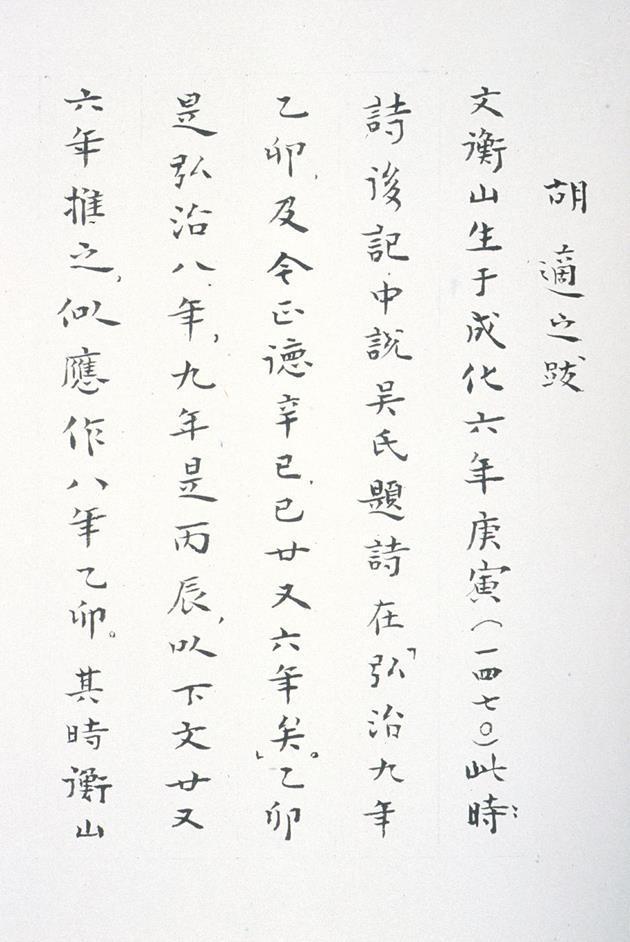 胡適之跋
文衡山生于成化六年庚寅(一四七〇)此時:
詩後記中說吳氏題詩在「弘治九年
乙卯,及今正德辛巳,已廿又六年矣。」乙卯
是弘治八年,九年是丙辰,以下文廿又
六年推之,似應作八年乙卯。其時衡山